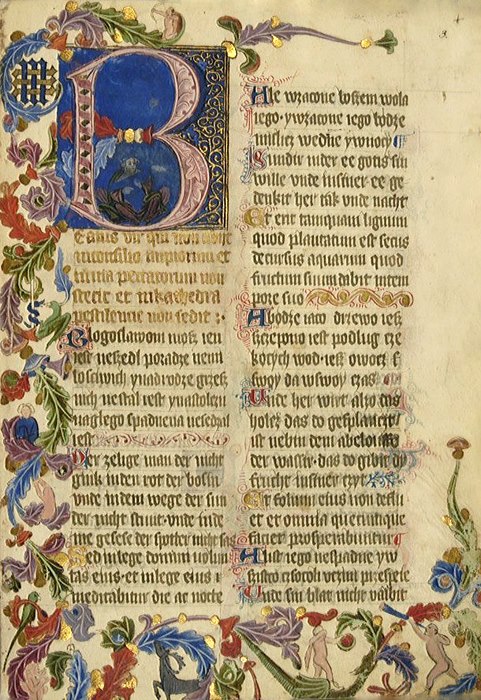 Beatus vir qui non abiit
in consilio impiorum et
in via peccatorum non
stetit et in kathedra
pestilencie non sedit :
Blogoslawoni møsz ien
iest ne szedl po radze nemi
losciwich y na drodze grzesz
nich ne stal iest y na stolczu
naglego spadnena ne sedzal
iest
Der zelige man der nicht
gink in den rot der bosin
vnde in dem wege der sun
der nicht stunt vnde in de
me gesese der spotter nicht sas
Sed in lege domini volun
tas eius et in lege eius
meditabitur die ac nocte
Ale w zacone bozem wola
iego y w zacone iego bødze
mislicz we dne y w noczy
Sundir in der ee gotis sin
wille vnde in siner ee ge
denkit her tak vnde nacht
Et erit tamquam lignum
quod plantatum est secus
decursus aquarum quod
fructum suum dabit in tem
pore suo
A bødze iaco drzewo iesz
szczepono iest podlug cze
kocych wod iesz owocz s
swoy da w swoy czas
Vnde her wirt alzo das
holcz das do gesplanczit
ist nebin dem abeloufte
der wassir das do gibit dy
frucht in siner czyt
Et folium eius non deflu
et et omnia quecumque
faciet prosperabuntur
A list iego ne spadne y w
szistko czsocoli uczini przespeie
Vnde sin blat nicht valbit